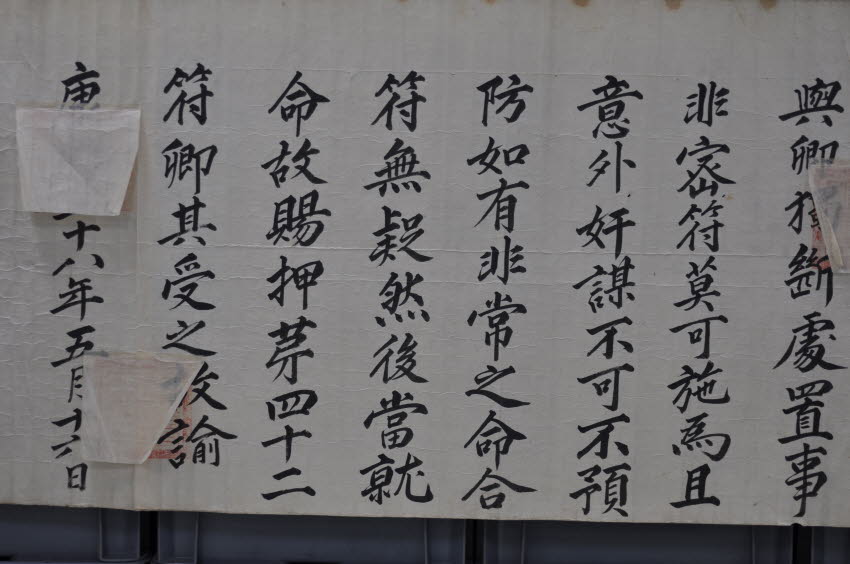 與卿獨斷處置事
非密符莫可施爲且
意外奸謀不可不預
防如有非常之命合
符無疑然後當就
命故賜押第四十二
符卿其受之故諭
十八年五月十六日